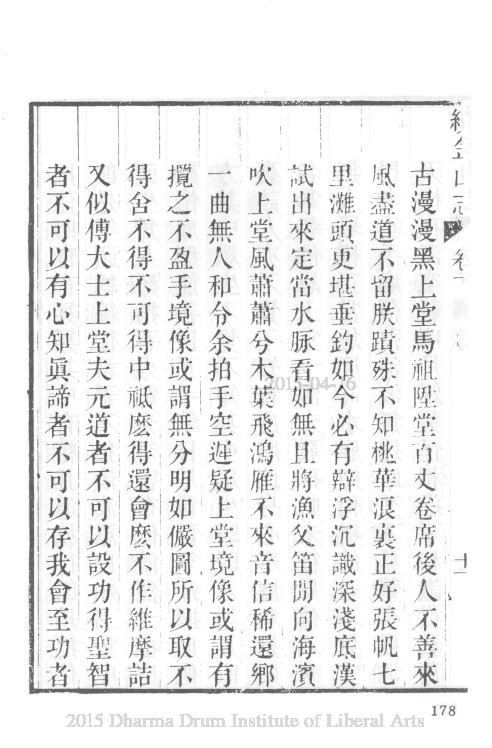 續金山志 卷十 十一
古漫漫黑上堂馬祖陞堂百丈卷席後人不善來
風盡道不留朕蹟殊不知桃華浪裏正好張帆七
里灘頭更堪垂釣如今必有辯浮沉識深淺底漢
試出來定當水脉看如無且將漁父笛閒向海濱
吹上堂風蕭蕭兮木葉飛鴻雁不來音信稀還鄉
一曲無人和令余拍手空遲疑上堂境像或謂有
攬之不盈手境像或謂無分明如儼圖所以取不
得舍不得不可得中祇麼得還會麼不作維摩詰
又似傅大士上堂夫元道者不可以設功得聖智
者不可以有心知眞諦者不可以存我會至功者
178
2015-04-16
2015 Dharma Drum Institute of Liberal Arts